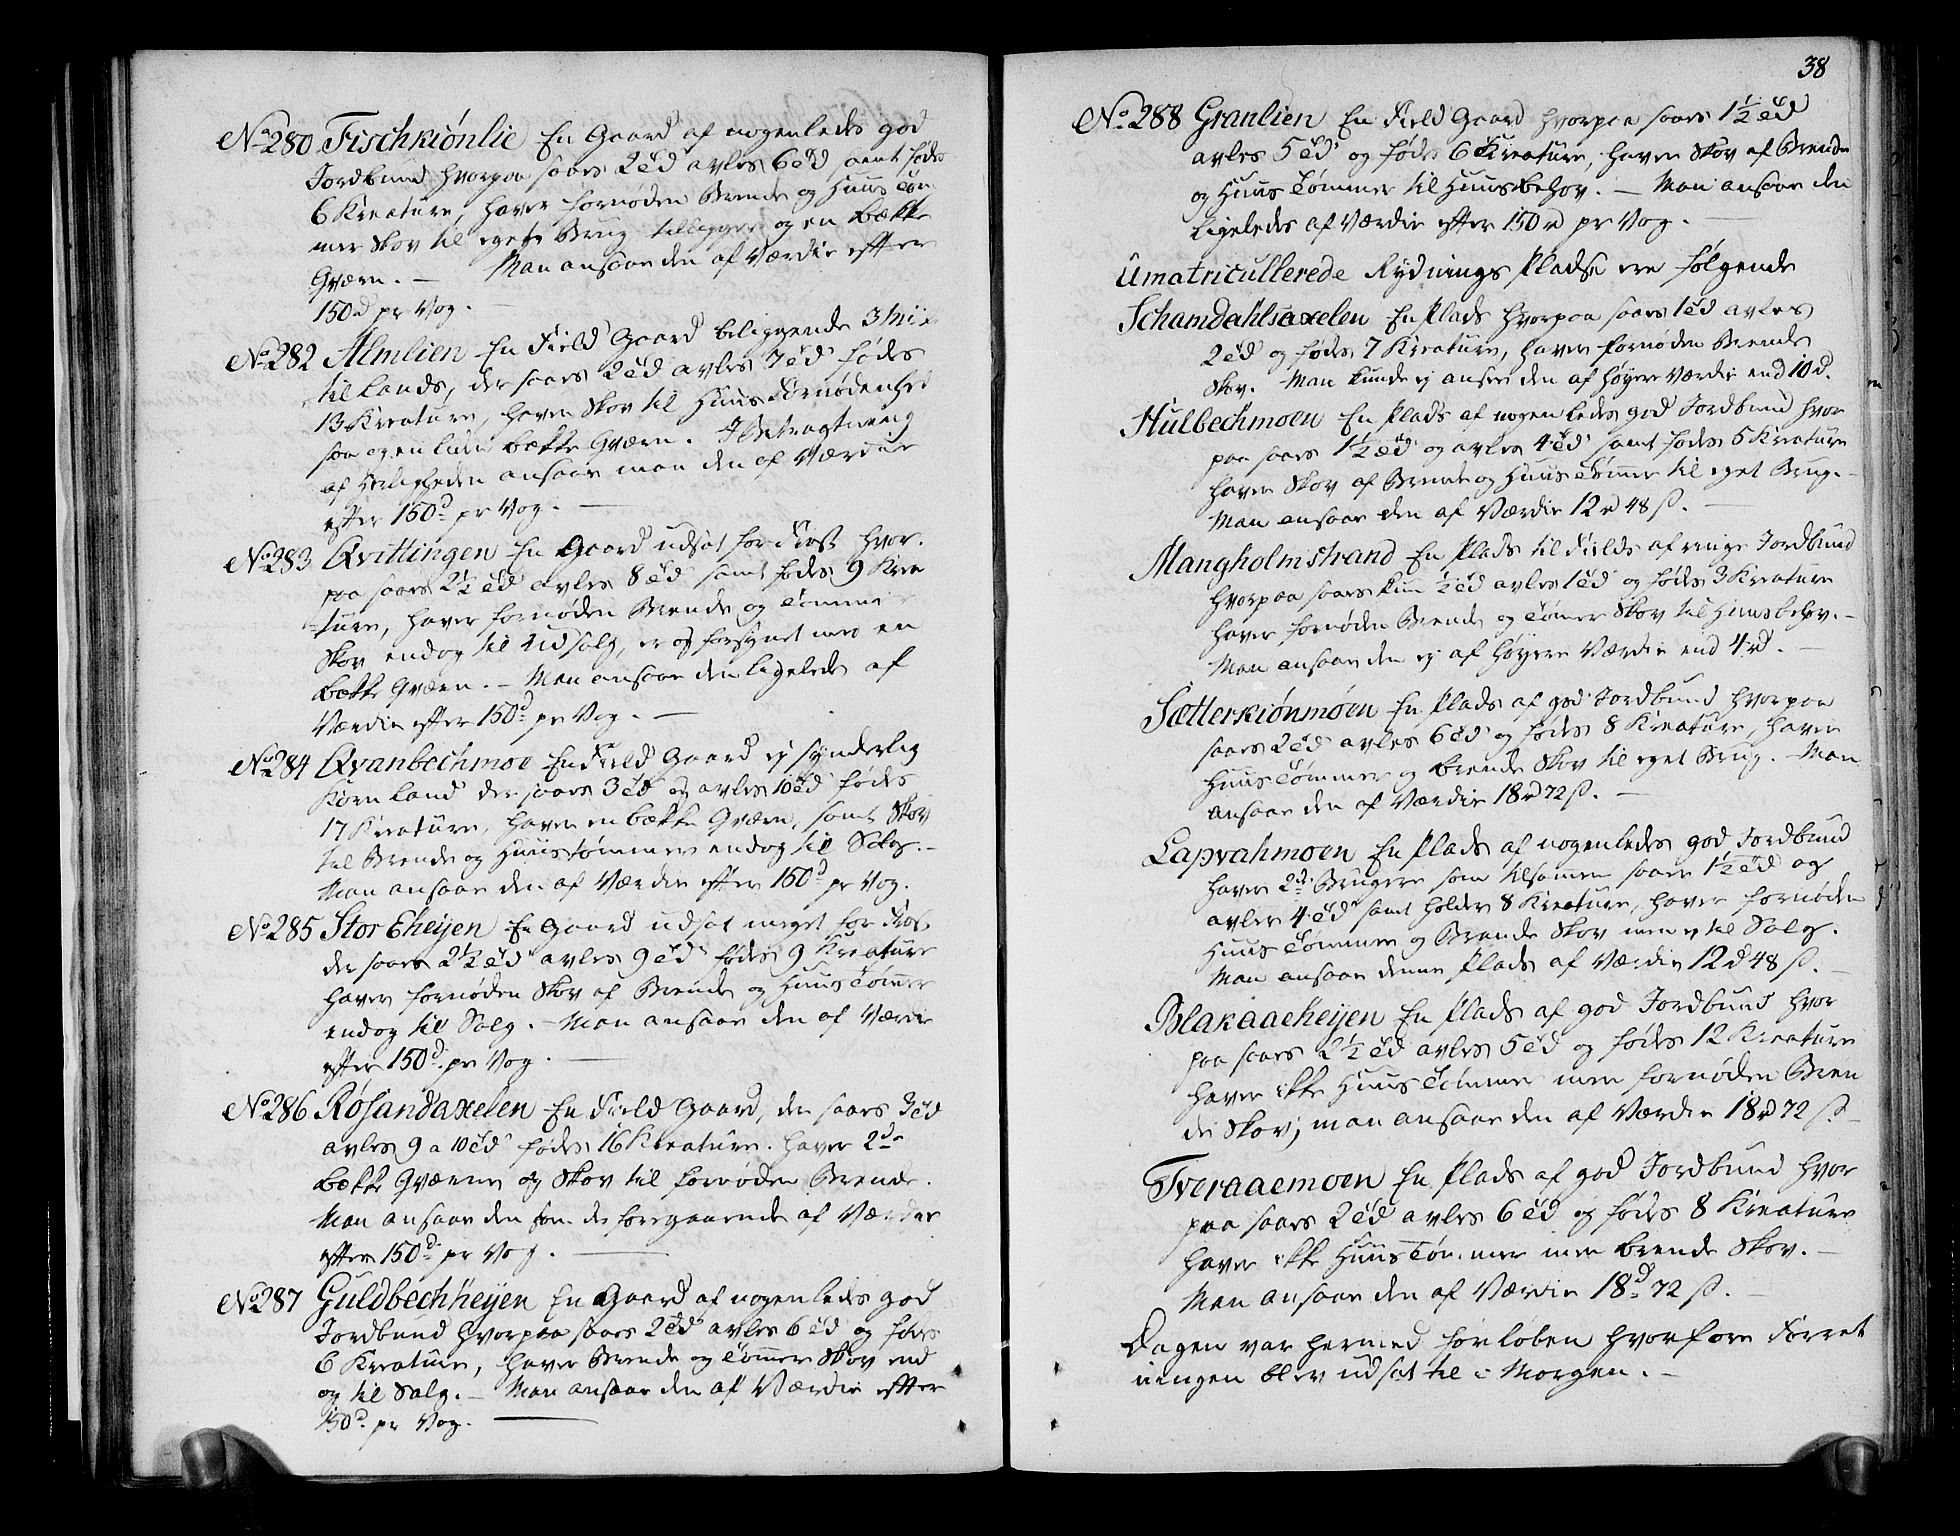 No 280 Fischkiønlie En Gaard af nogenledes god
Jordbund hvorpaa saaes 2 td avles 6 td samt fødes
6 Kreature, haver fornøden Brende og Huus Tøm
mer Skov til eget Brug tilligge og en Bække
Qværn. — Man ansaae den af Værdie efter
150 d pr Vog.
No 282 Almlien En Field Gaard beliggende 3 Miil
til lands, der saaes 2 td avles 7 td fødes
13 Kreature, haver Skov til Huus Fornødenhed
saa og en liden Bække Qværn. I Betragtning
af Herligheden ansaae man den af Værdie
efter 150 d pr Vog. —
No 283 Qvittingen En Gaard udsat for Frost hvor
paa saaes 2 1/2 td avles 8 td samt fødes 9 Krea
ture, haver fornøden Brende og Tømmer
Skov endog til Udsalg, er og forsynet med en
Bække Qværn. — Man ansaae den ligeledes af
Værdie efter 150 d pr Vog. —
No 284 Qvanbechmoe En Field Gaard ej synderlig
Korn land der saaes 3 td og avles 10 td fødes
17 Kreature, haver en bække Qværn, samt Skov
til Brende og Huustømmer endog til Salg. —
Man ansaae den af Værdie efter 150 d pr Vog.
No 285 Stor Eheijen En Gaard udsat meget for Frost,
der saaes 2 1/2 td avles 9 td fødes 9 Kreature
haver fornøden Skov af Brende og Huus Tømer
endog til Salg. — Man ansaae den af Værdie
efter 150 d pr Vog. —
No 286 Røsandaxelen En Field Gaard, der saaes 3 td
avles 9 a 10 td fødes 16 Kreature. haver 2de
Bække Qværne og Skov til fornøden Brende.
Man ansaae den som de foregaaende af Værdie
efter 150 d pr Vog. —
No 287 Guldbechheijen En Gaard af nogenledes god
Jordbund hvorpaa saaes 2 td avles 6 td og fødes
6 Kreature, haver Brende og Tømer Skov end
og til Salg. — Man ansaae den af Værdie efter
150 d pr Vog. —
38
No 288 Granlien En Field Gaard hvorpaa saaes 1 1/2 td
avles 5 td og fødes 6 Kreature, haver Skov af Brende
og Huus Tømmer til Huusbehov. — Man ansaae den
Ligeledes af Værdie efter 150 d pr Vog. —
Umatricullerede Rydnings Pladse ere følgende
Schamdahlsaxelen En Plads hvorpaa saaes 1 td avles
2 td og fødes 7 Kreature, haver fornøden Brende
Skov. Man kunde ej ansee den af høyere Værdie end 10 d.
Hulbechmoen En Plads af nogenledes god Jordbund hvor
paa saaes 1 1/2 td og avles 4 td samt fødes 5 Kreature
haver Skov af Brende og Huus Tømmer til eget Brug. —
Man ansaae den af Værdie 12 d 48 s. —
Mangholmstrand En Plads til Fields af ringe Jordbund
hvorpaa saaes kun 1/2 td avles 1 td og fødes 3 Kreature
haver fornøden Brende og Tømer Skov til Huusbehov. —
Man ansaae den ej af høyere Værdie end 4 d. —
Sætterkiønmoen En Plads af god Jordbund hvorpaa
saaes 2 td avles 6 td og fødes 8 Kreature, haver
Huus Tømmer og Brende Skov til eget Brug. — Man
ansaae den af Værdie 18 d 72 s. —
Lapvahmoen En Plads af nogenledes god Jordbund
haver 2de Brugere som tilsammen saaer 1 1/2 td og
avler 4 td samt holder 8 Kreature, haver fornøden
Huus Tømmer og Brende Skov men ej til Salg.
Man ansaae denne Plads af Værdie 12 d 48 s. —
Blakaaeheijen En Plads af god Jordbund hvor
paa saaes 2 1/2 td avles 5 td og fødes 12 Kreature
haver ikke Huus Tømmer men fornøden Bren
de Skov; man ansaae den af Værdie 18 d 72 s. —
Tveraaemoen En Plads af god Jordbund hvor
paa saaes 2 td avles 6 td og fødes 8 Kreature
haver ikke Huus Tømmer men Brende Skov. —
Man ansaae den af Værdie 18 d 72 s. —
Dagen var hermed forløben hvorfore Forret
ningen blev udsat til i Morgen. —